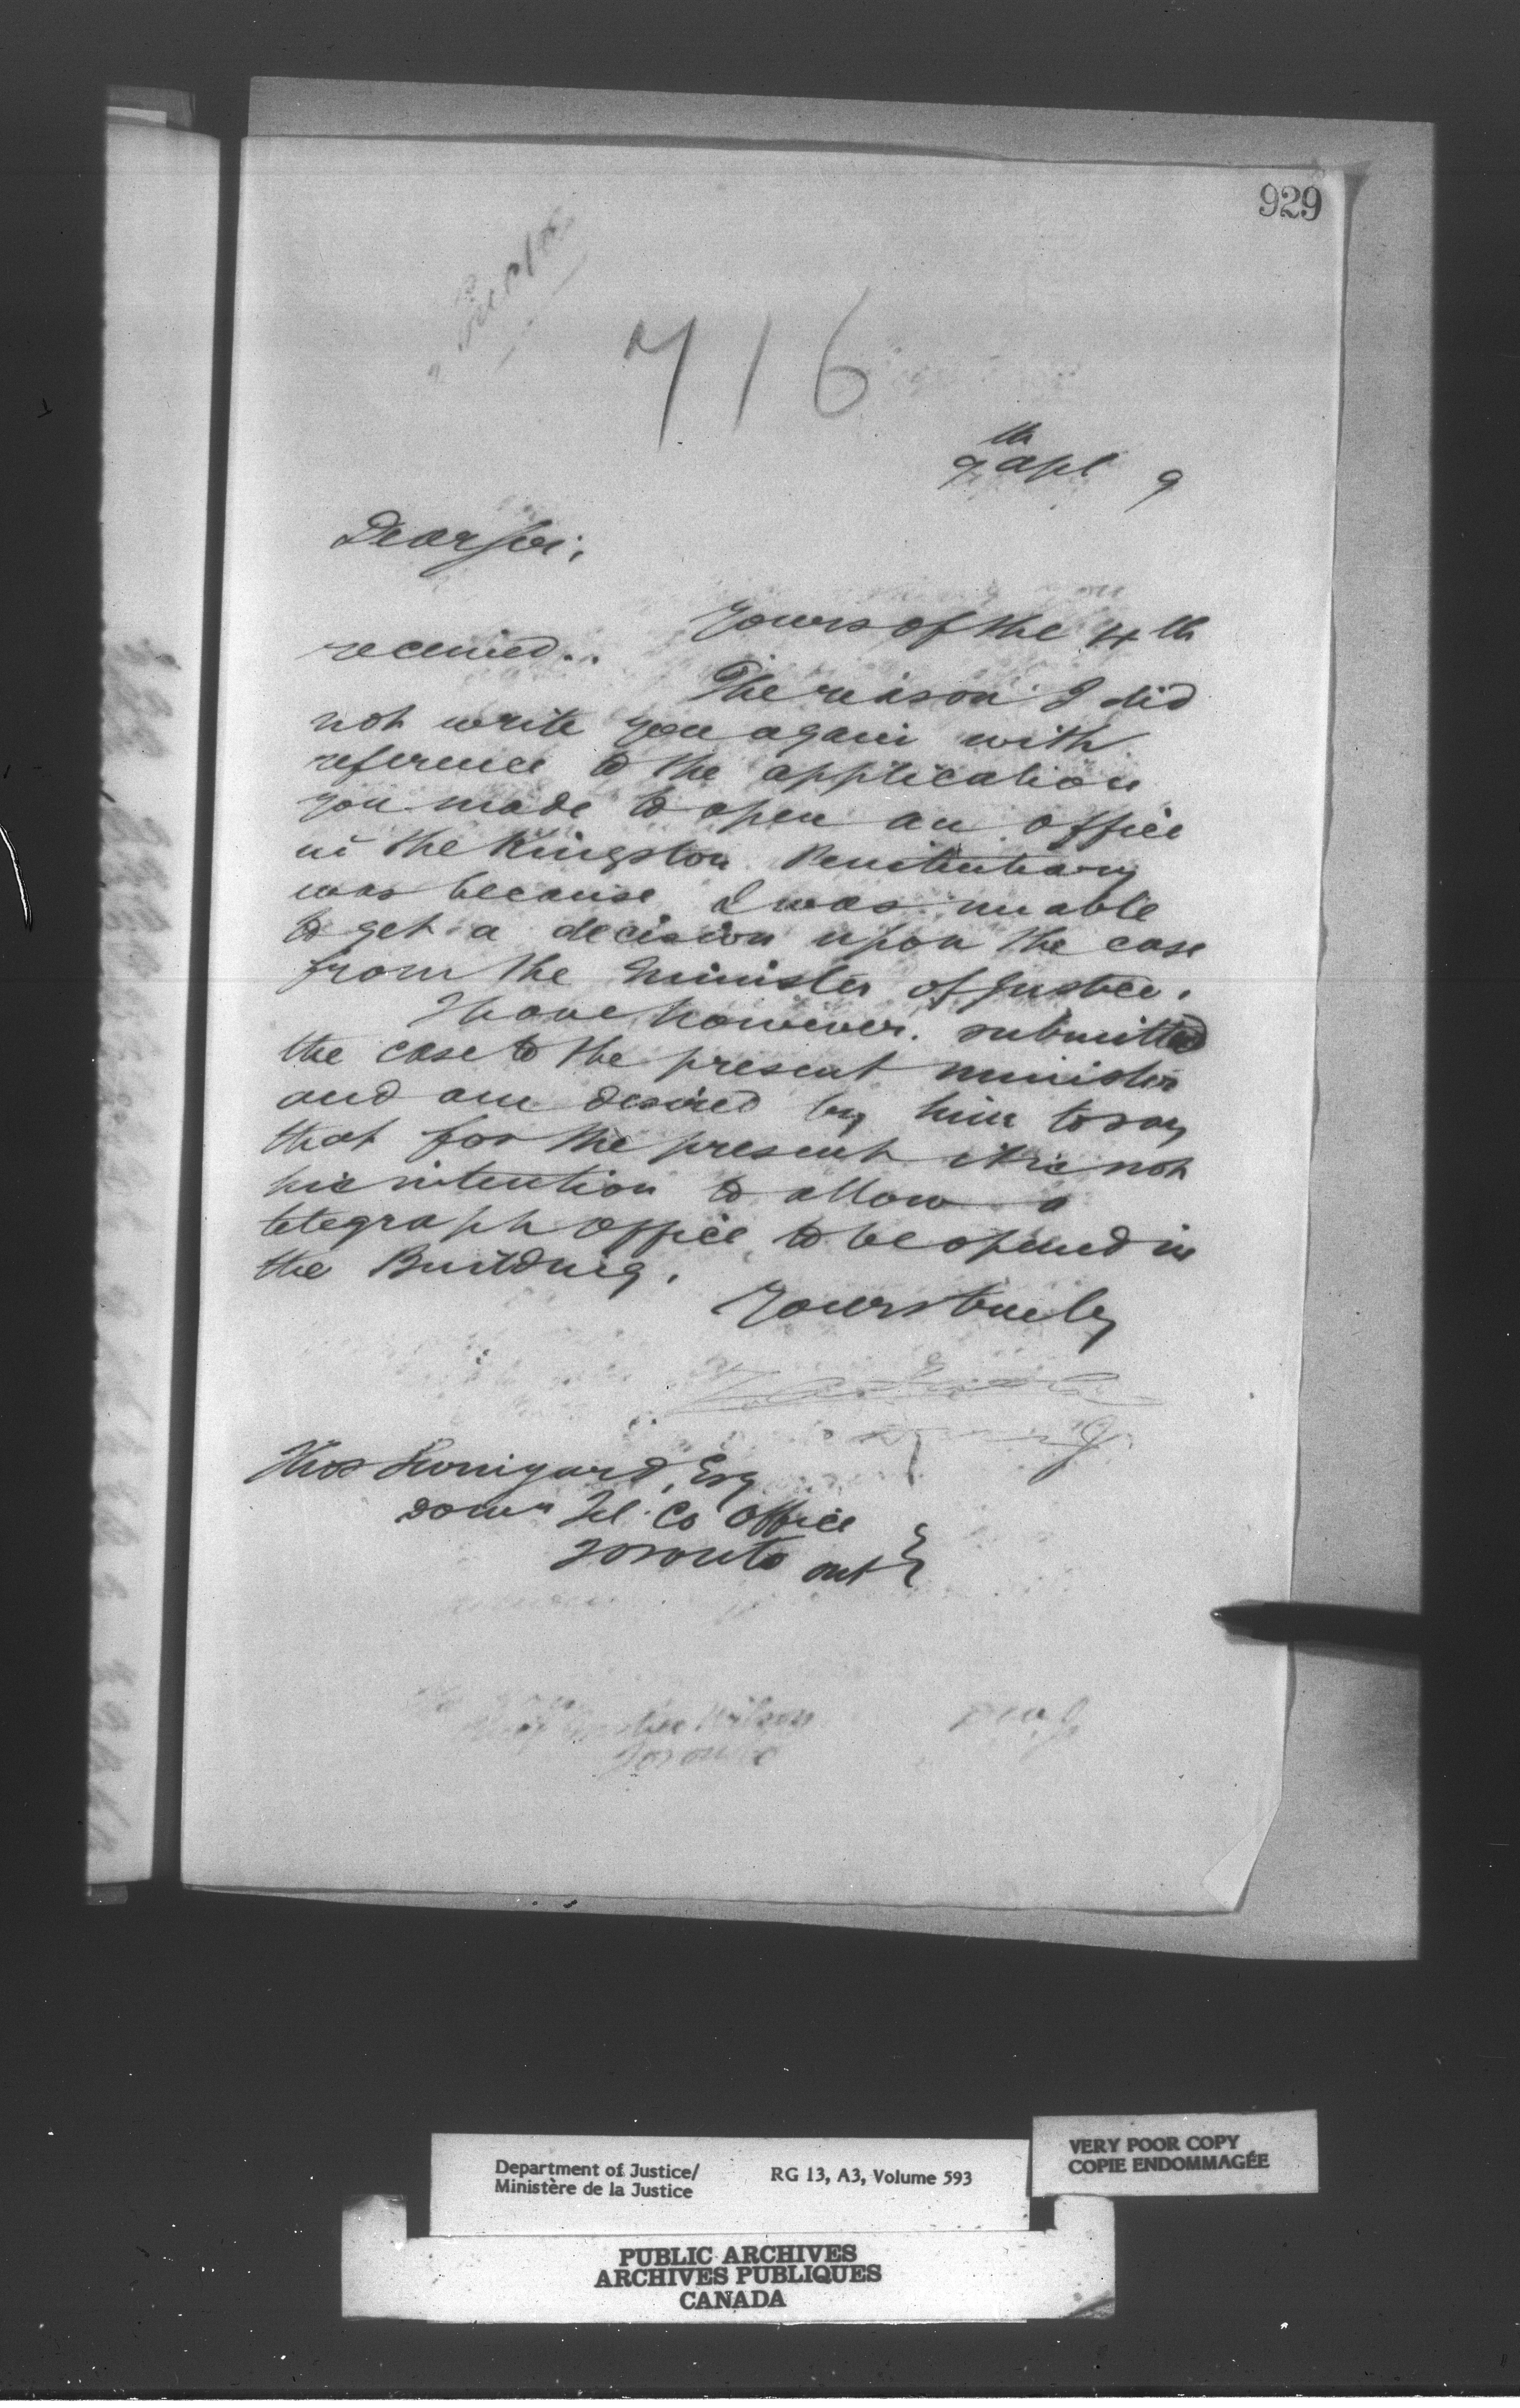 929
716
9th Apl 9
Dear Sir,
Yours of the 4th
received.
The reason I did
not write you again with
reference to the application
you made to open an office
in the Kingston Penitentiary
was because I was unable
to get a decision upon the case
from the Minister of Justice.
I have however submitted
the case to the present minister
and am desired by him to say
that for the present it is not
his intention to allow a
telegraph office to be opened in
the Building.
Yours truly
Thos Esq
Domn Tel. Co Office
Toronto Ont
Wilson
Toronto
Department of Justice/ RG 13, A3, Volume 593
Ministère de la Justice
VERY POOR COPY
COPIE ENDOMMAGÉE
PUBLIC ARCHIVES
ARCHIVES PUBLIQUES
CANADA